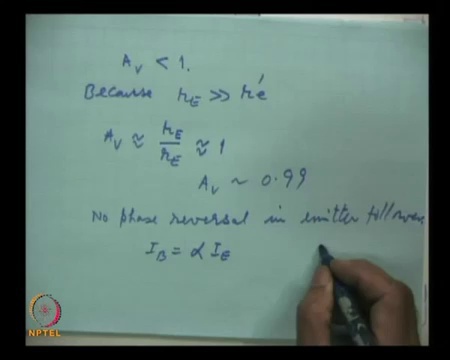 A_V < 1.
Because r_E >> r'e
A_V ≈ r_E / r_E ≈ 1
A_V ~ 0.99
No phase reversal in emitter follower
I_B = α I_E
NPTEL